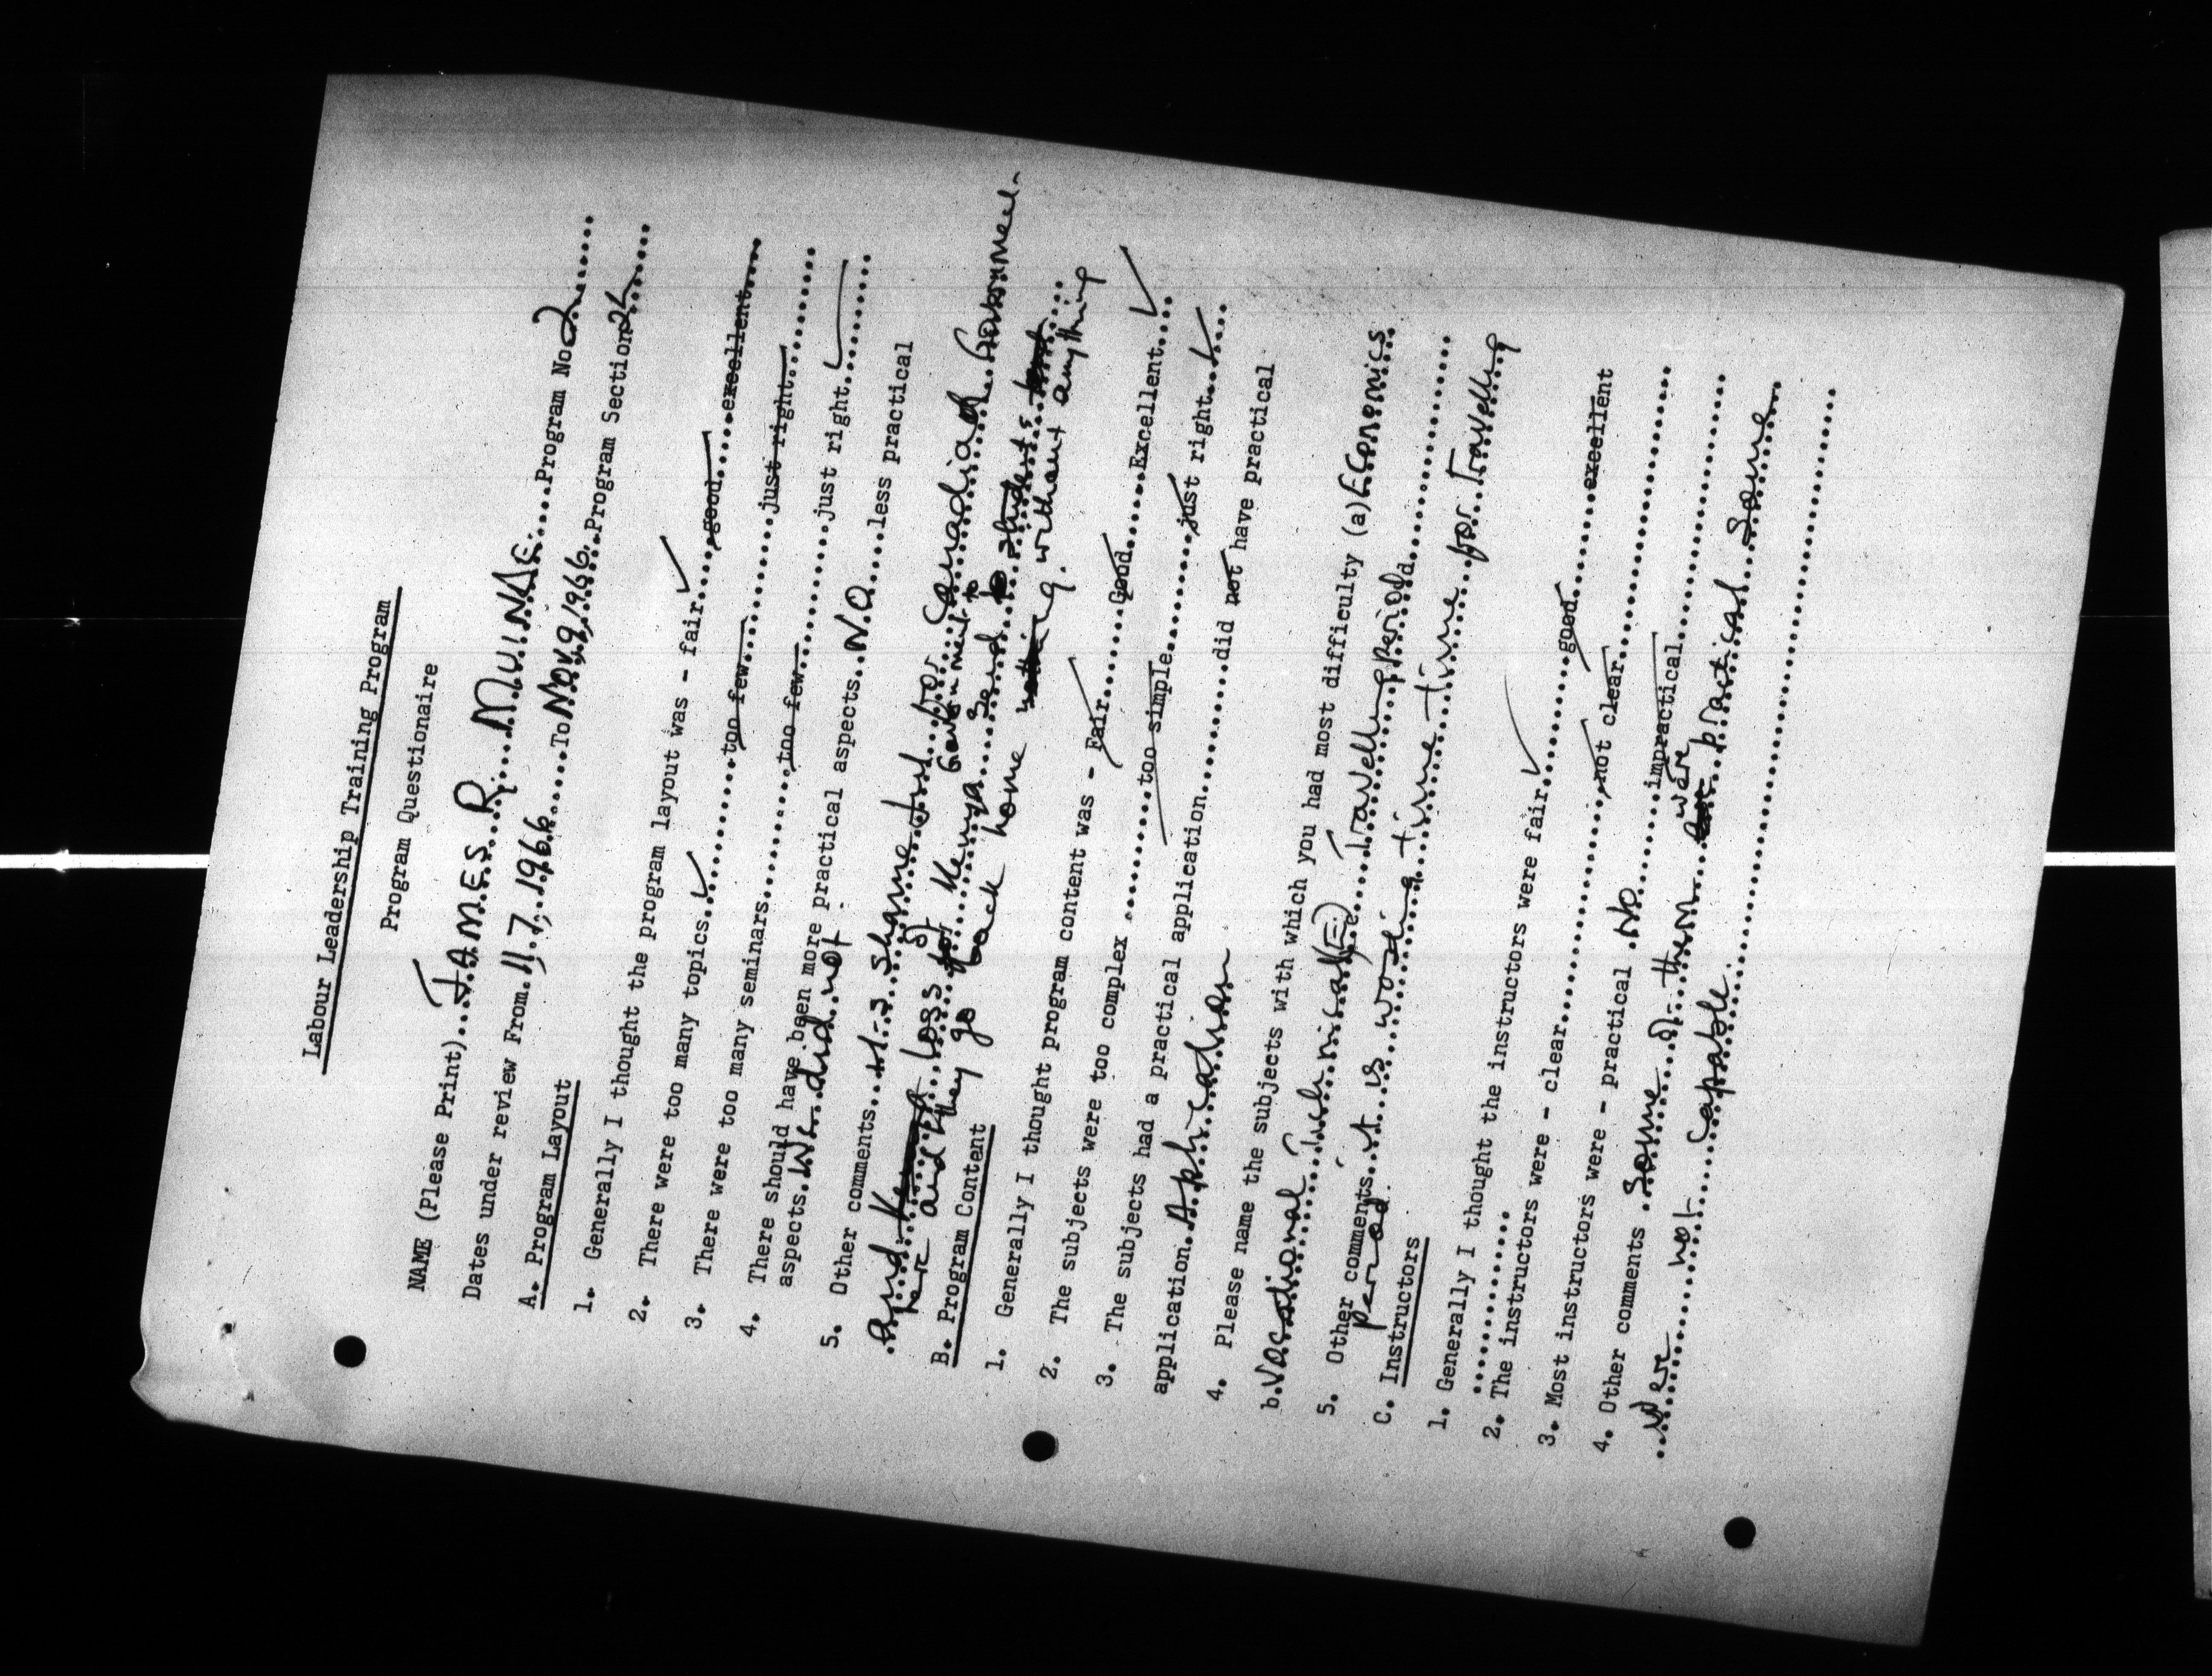 Labour Leadership Training Program
Program Questionaire
NAME (Please Print)....JAMES R. MUINDE....Program No 2......
Dates under review From. 11.7, 1966......To Nov 9, 1966. Program Section 2......
A. Program Layout
1. Generally I thought the program layout was - fair ✓....good....excellent....
2. There were too many topics..✓........too few..........just right..........
3. There were too many seminars............too few..........just right..........
4. There should have been more practical aspects..NO.....less practical
aspects. We did not.
5. Other comments....It is shame to just for Canadian Government
and loss of Kenya Government to send students
here and they go back home without anything
B. Program Content
1. Generally I thought program content was - Fair........Good......Excellent....✓
2. The subjects were too complex ..........too simple............just right....✓
3. The subjects had a practical application............did not have practical
application. Application
4. Please name the subjects with which you had most difficulty (a) Economics
b. Vocational Technical (E.).... Travelling period.........
5. Other comments. it is wasting time time for Travelling
period.
C. Instructors
1. Generally I thought the instructors were fair ✓........good..........excellent
...........
2. The instructors were - clear..................not clear....................
3. Most instructors were - practical .NO.......impractical....................
4. Other comments .Some of them were practical. Some
were not capable.